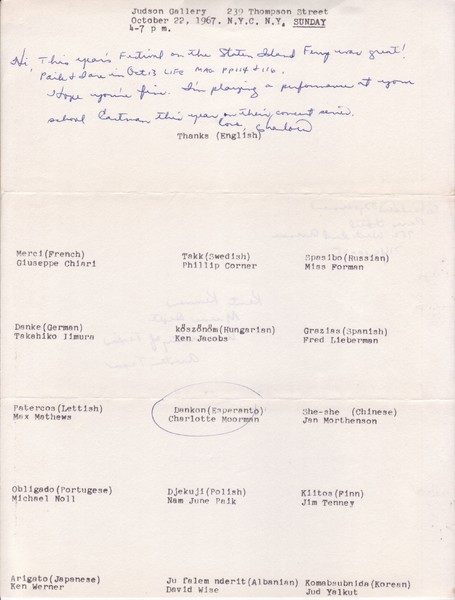 Judson Gallery 239 Thompson Street
October 22, 1967. N.Y.C. N.Y. SUNDAY
4-7 p m.
Hi This year's Festival on the Staten Island Ferry was great!
Paik & I are in Oct 13 LIFE MAG PP 114 & 116.
Hope you're fine. I'm playing a performance at your
school Eastman this year on their concert series.
Love, Charlotte
Thanks (English)
Merci(French) Takk(Swedish) Spasibo(Russian)
Giuseppe Chiari Phillip Corner Miss Forman
Danke(German) köszönöm(Hungarian) Grazias(Spanish)
Takehiko Iimura Ken Jacobs Fred Lieberman
Patercos(Lettish) Dankon(Esperanto) She-she (Chinese)
Max Mathews Charlotte Moorman Jan Morthenson
Obligado(Portugese) Djekuji(Polish) Klitos(Finn)
Michael Noll Nam June Paik Jim Tenney
Arigato(Japanese) Ju falem nderit(Albanian) Komabsubnida(Korean)
Ken Werner David Wise Jud Yalkut